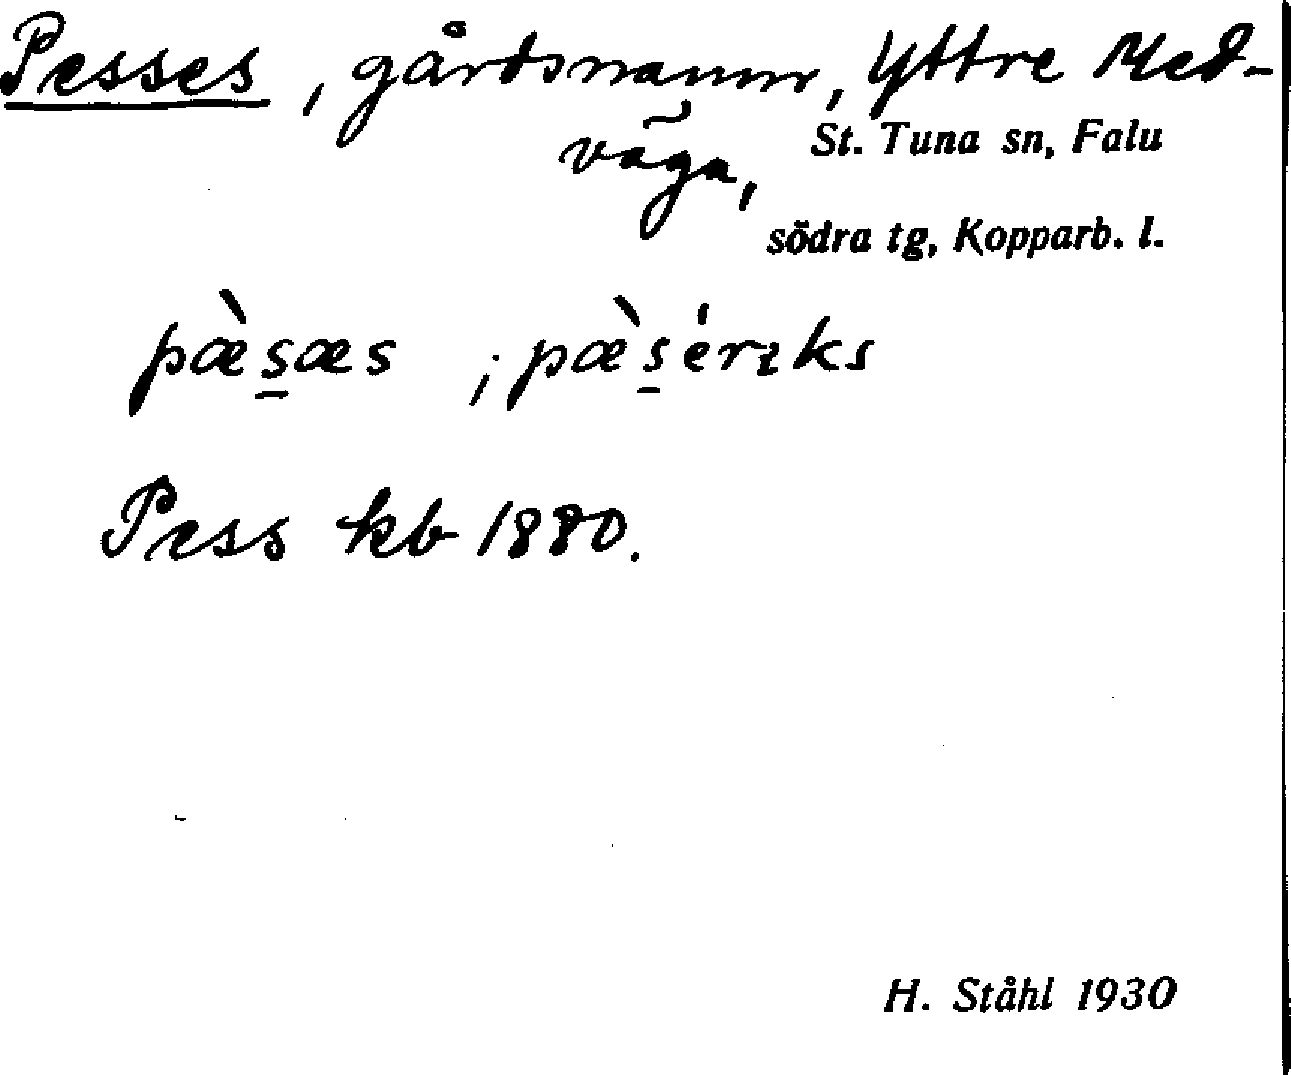 Pesses, gårdsnamn, Yttre Med-
väga,
St. Tuna sn, Falu
södra tg, Kopparb. l.
pæ̀s̱æs ; pæ̀s̱érɪks
Pess kb 1880.
H. Ståhl 1930